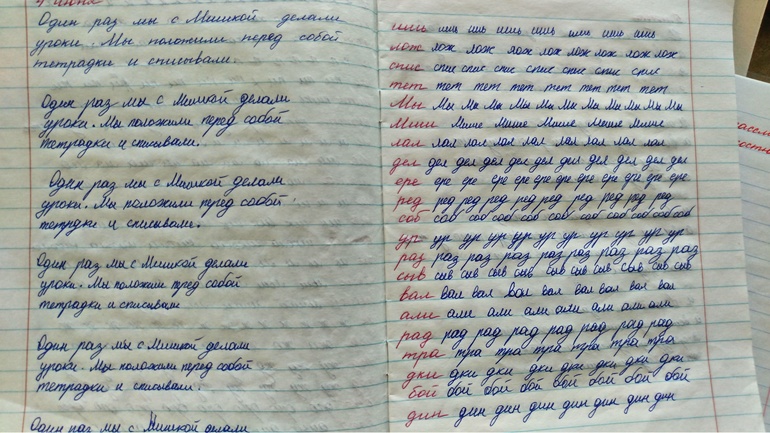 Один раз мы с Мишкой делали
уроки. Мы положили перед собой
тетрадки и списывали.
Один раз мы с Мишкой делали
уроки. Мы положили перед собой
тетрадки и списывали.
Один раз мы с Мишкой делали
уроки. Мы положили перед собой
тетрадки и списывали.
Один раз мы с Мишкой делали
уроки. Мы положили перед собой
тетрадки и списывали
Один раз мы с Мишкой делали
уроки. Мы положили перед собой
тетрадки и списывали.
Один раз мы с Мишкой делали
шь шь шь шь шь шь шь
лож лож лож лож лож лож лож лож
спис спис спис спис спис спис спис
тет тет тет тет тет тет тет
Мы Мы Мы Мы Мы Мы Мы Мы Мы Мы
Мише Мише Мише Мише Мише
лал лал лал лал лал лал лал лал
дел дел дел дел дел дел дел дел дел
ере ере ере ере ере ере ере ере ере
ред ред ред ред ред ред ред ред
соб соб соб соб соб соб соб соб соб
ур ур ур ур ур ур ур ур ур ур
раз раз раз раз раз раз раз раз
сыв сыв сыв сыв сыв сыв сыв сыв сыв
вал вал вал вал вал вал вал вал
али али али али али али али али
рад рад рад рад рад рад рад рад
тра тра тра тра тра тра тра
дки дки дки дки дки дки дки дки
бой бой бой бой бой бой бой бой
дин дин дин дин дин дин дин дин